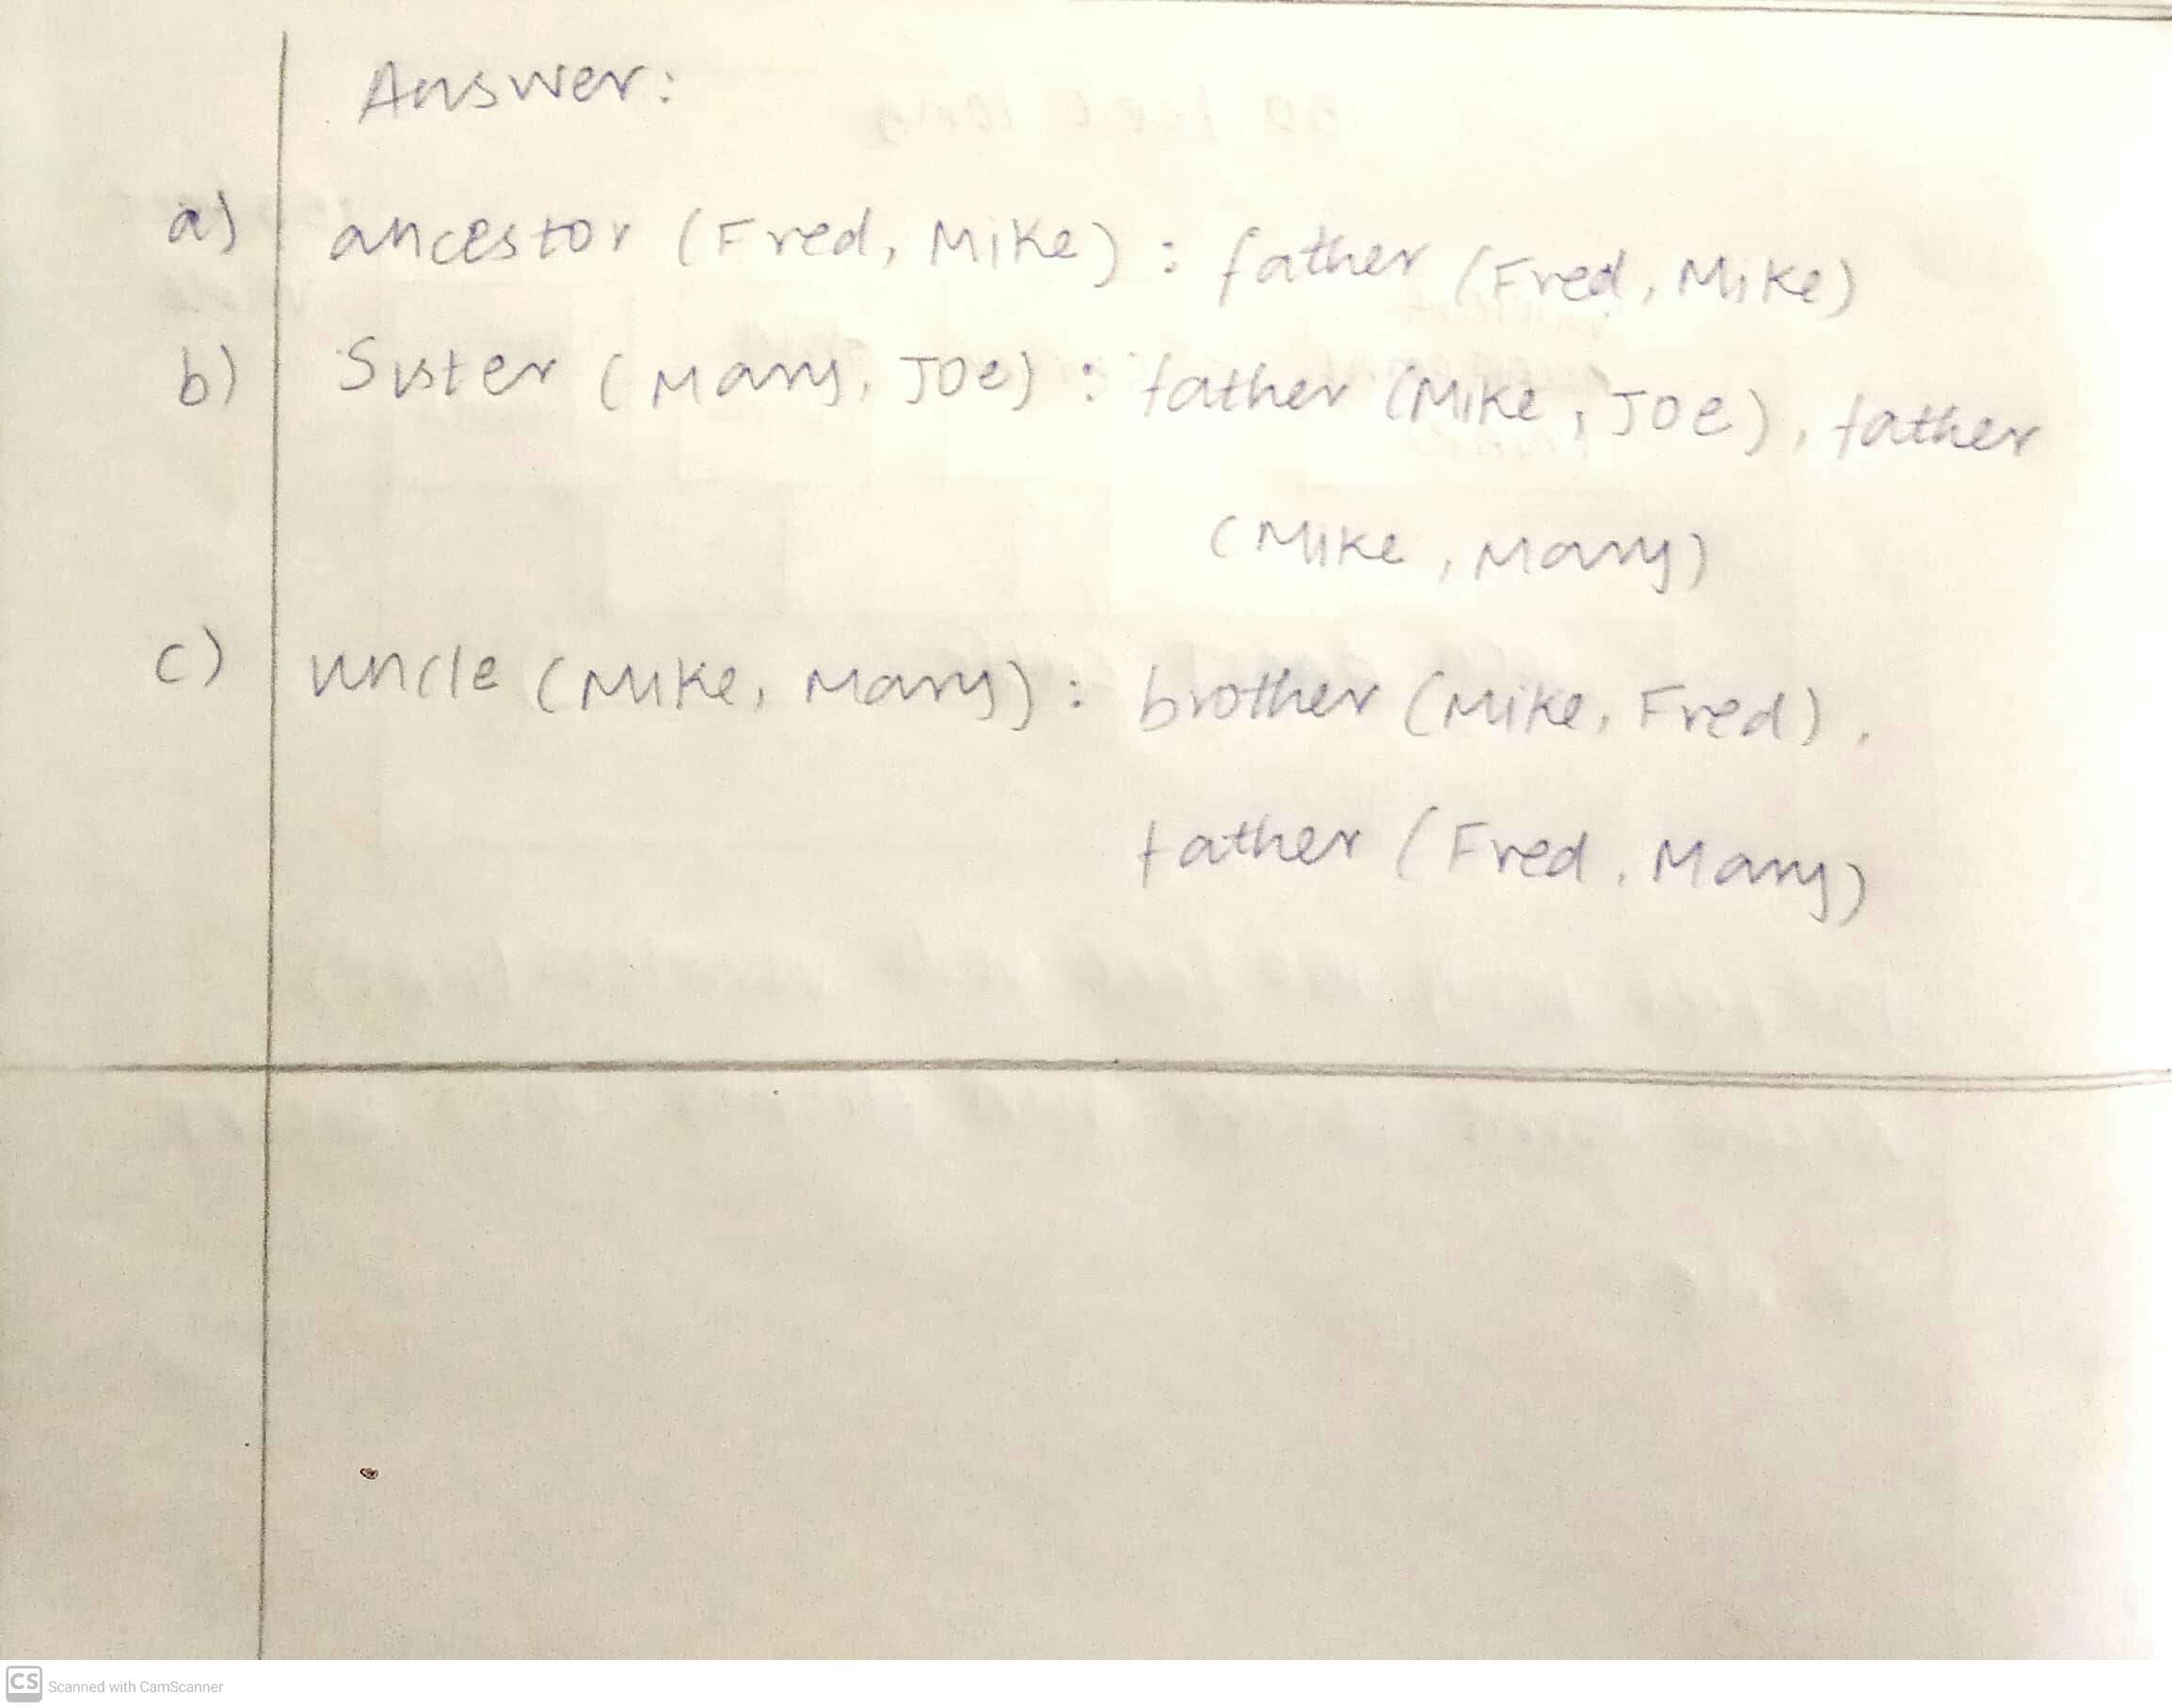 Answer:
a) ancestor (Fred, Mike) : father (Fred, Mike)
b) Sister (Mary, Joe) : father (Mike, Joe), father
(Mike, Mary)
c) uncle (Mike, Mary) : brother (Mike, Fred),
father (Fred, Mary)
CS Scanned with CamScanner